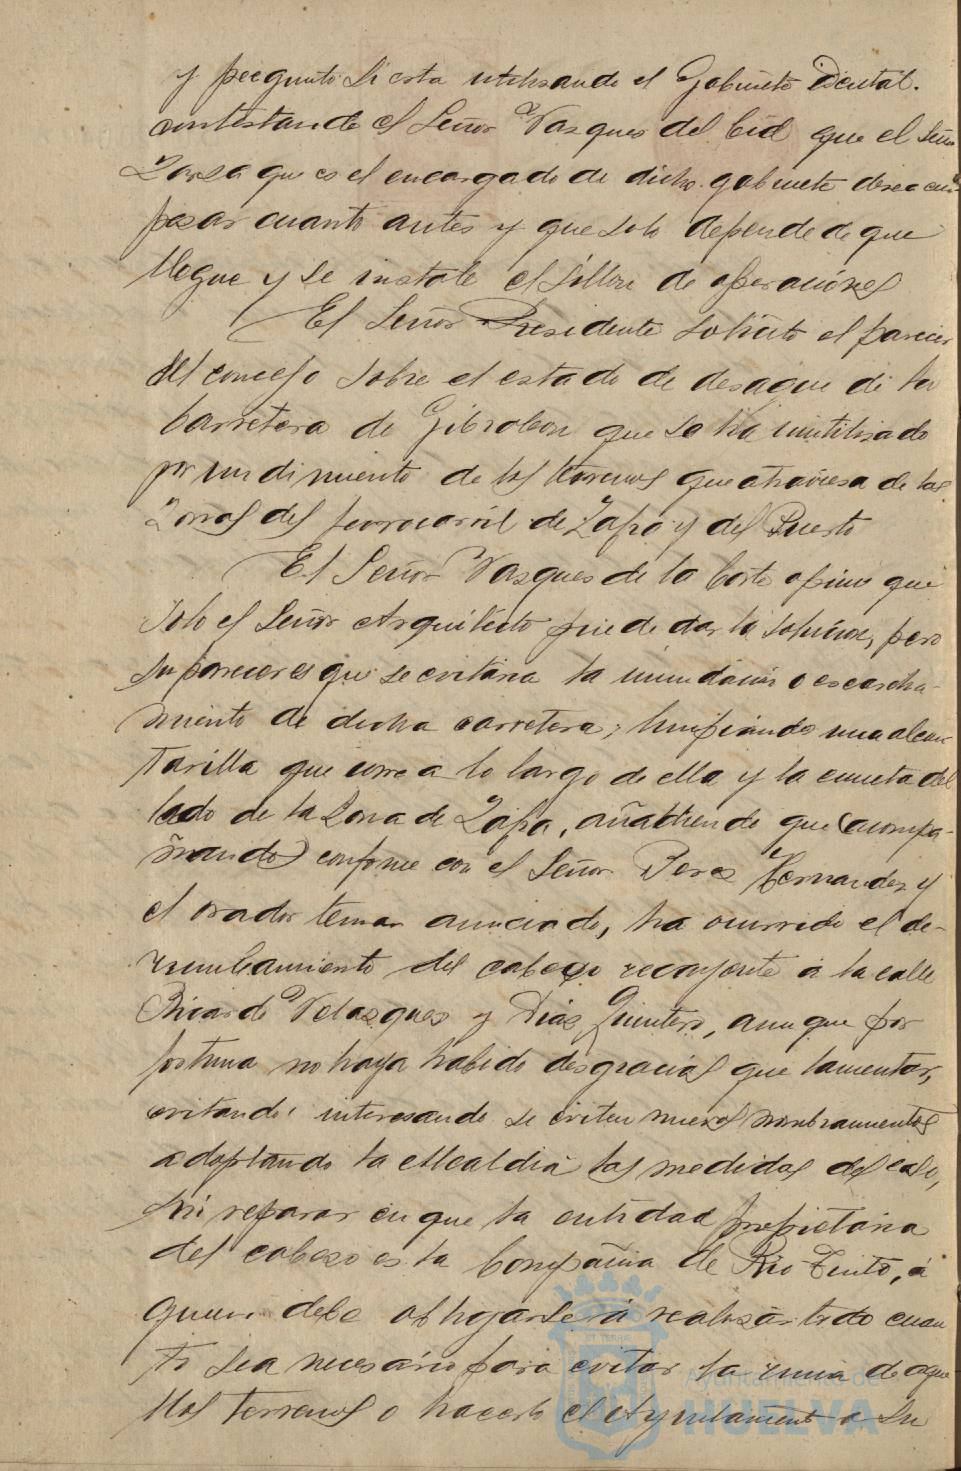 y pregunto si esta utilisando el Gabinete Dental.
contestando el Señor Vasques del Cid que el Señor
Zarza que es el encargado de dicho gabinete desea em-
pesar cuanto antes y que solo depende de que
llegue y se instale el sillon de operaciones
El Señor Presidente solicito el parecer
del concejo sobre el estado de desague de la
Carretera de Gibraleon que se ha inutilisado
por undimiento de los terrenos que atraviesa de las
Zonas del ferrocarril de Zafra y del Puerto
El Señor Vasques de la Corte opino que
solo el Señor Arquitecto puede dar la solucion, pero
su parecer es que se evitaria la inundacion o escarcha-
miento de dicha carretera; limpiando una alcan-
tarilla que corre a lo largo de ella y la cuneta del
lado de la Zona de Zafra, añadiendo que (acompa-
ñando) conforme con el Señor Peres Hernandez y
el orador tenian anunciado, ha ocurrido el de-
rumbamiento del cabezo recayente á la calle
Ricardo Velasques y Dias Quintero, aunque por
fortuna no haya habido desgracias que lamentar,
evitando, interesando se eviten nuevos
adoptando la Alcaldia las medidas del caso,
sin reparar en que la entidad propietaria
del cabezo es la Compañia de Rio Tinto, á
quien debe obligarse á realizar todo cuan
to sea necesario para evitar la ruina de aque-
llos terrenos o hacerlo el Ayuntamiento a su
Ayuntamiento de
HUELVA